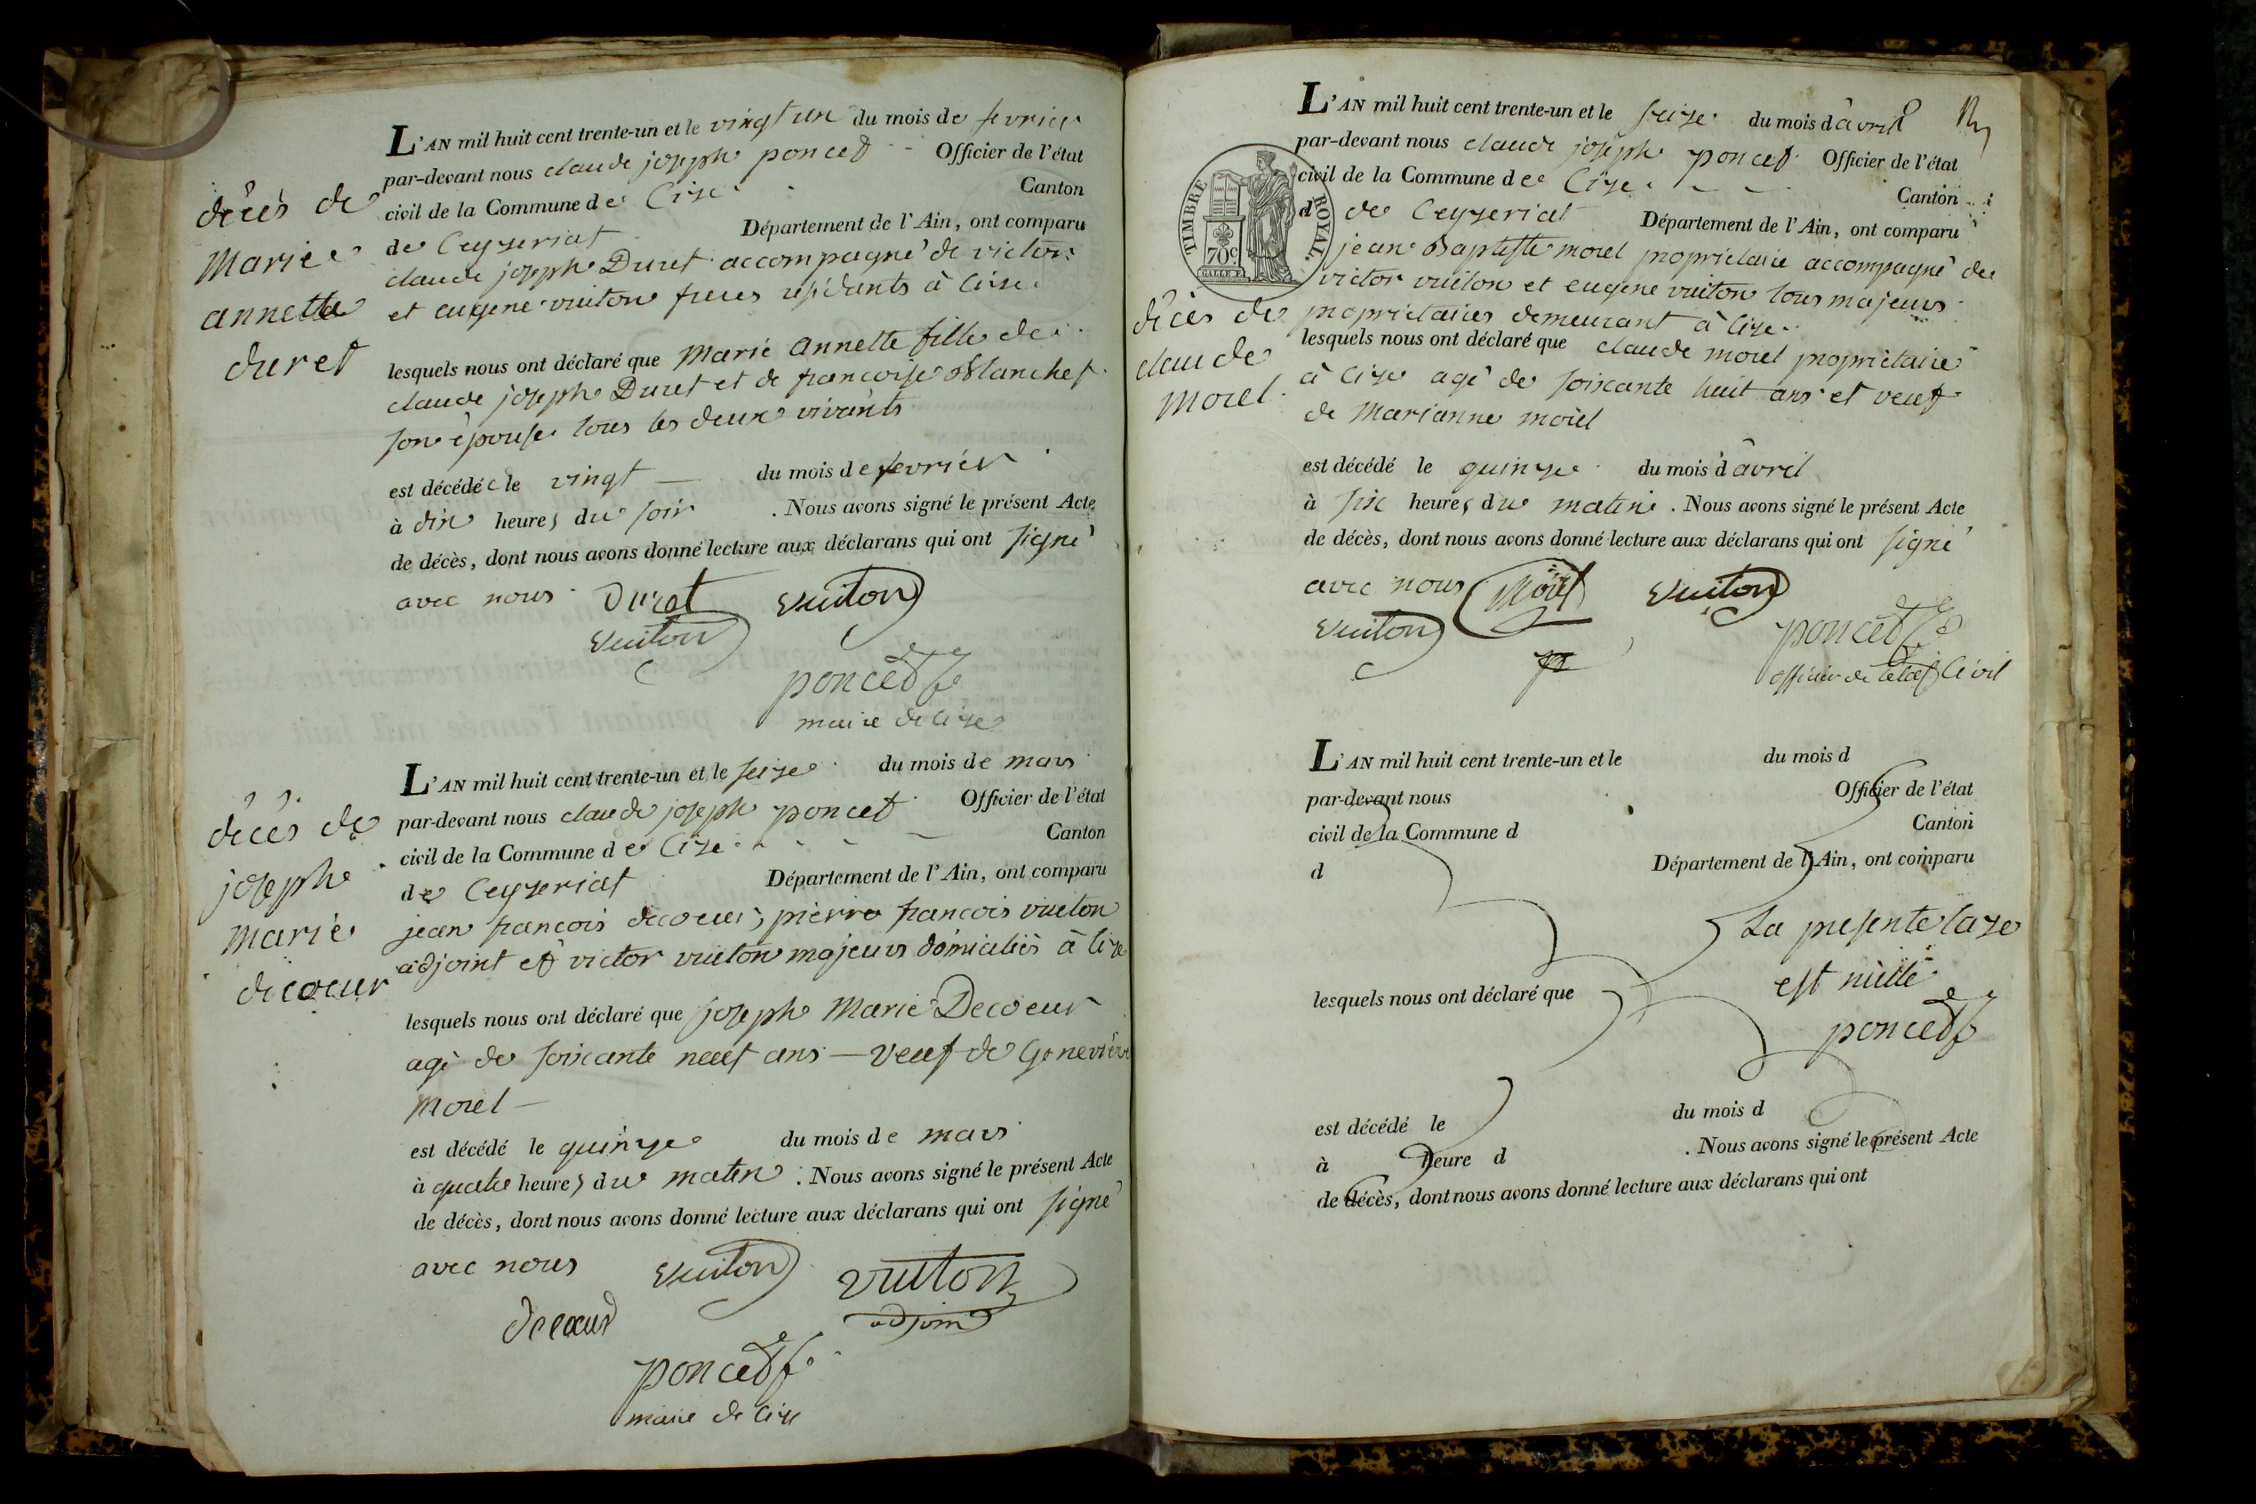 L'AN mil huit cent trente-un et le vingt un du mois de fevrier
par-devant nous claude joseph poncet Officier de l'état
civil de la Commune de Cize Canton
de Ceyzeriat Département de l'Ain, ont comparu
claude joseph Duret accompagné de victor
et eugene vuiton freres residants à Cize
lesquels nous ont déclaré que Marie annette fille de
claude joseph Duret et de francoise Blanchet
son épouse tous les deux vivants
est décédée le vingt du mois de fevrier
à dix heures du soir . Nous avons signé le présent Acte
de décès, dont nous avons donné lecture aux déclarans qui ont signé
avec nous Duret vuiton
vuiton
poncet
maire de Cize
décès de
Marie
annette
duret
L'AN mil huit cent trente-un et le seize du mois de mars
par-devant nous claude joseph poncet Officier de l'état
civil de la Commune de Cize Canton
de Ceyzeriat Département de l'Ain, ont comparu
jean francois decoeur, pierre francois vuiton
adjoint et victor vuiton majeurs domiciliés à Cize
lesquels nous ont déclaré que joseph Marie Decoeur
agé de soixante neuf ans — veuf de Genevieve
Morel —
est décédé le quinze du mois de mars
à quatre heures du matin . Nous avons signé le présent Acte
de décès, dont nous avons donné lecture aux déclarans qui ont signé
avec nous vuiton vuiton
decoeur adjoint
poncet
maire de Cize
décès de
joseph
marie
decoeur
L'AN mil huit cent trente-un et le seize du mois d'avril
par-devant nous claude joseph poncet Officier de l'état
civil de la Commune de Cize Canton
d de Ceyzeriat Département de l'Ain, ont comparu
jean Baptiste morel proprietaire accompagné de
victor vuiton et eugene vuiton tous majeurs
proprietaires demeurant à Cize
lesquels nous ont déclaré que claude morel proprietaire
à Cize agé de soixante huit ans et veuf
de Marianne morel
est décédé le quinze du mois d'avril
à six heures du matin . Nous avons signé le présent Acte
de décès, dont nous avons donné lecture aux déclarans qui ont signé
avec nous Morel vuiton
vuiton poncet
officier de l'etat Civil
TIMBRE ROYAL.
70c
décès de
claude
morel
L'AN mil huit cent trente-un et le du mois d
par-devant nous Officier de l'état
civil de la Commune d Canton
d Département de l'Ain, ont comparu
La presente Caze
est nulle
lesquels nous ont déclaré que
poncet
est décédé le du mois d
à heure d . Nous avons signé le présent Acte
de décès, dont nous avons donné lecture aux déclarans qui ont